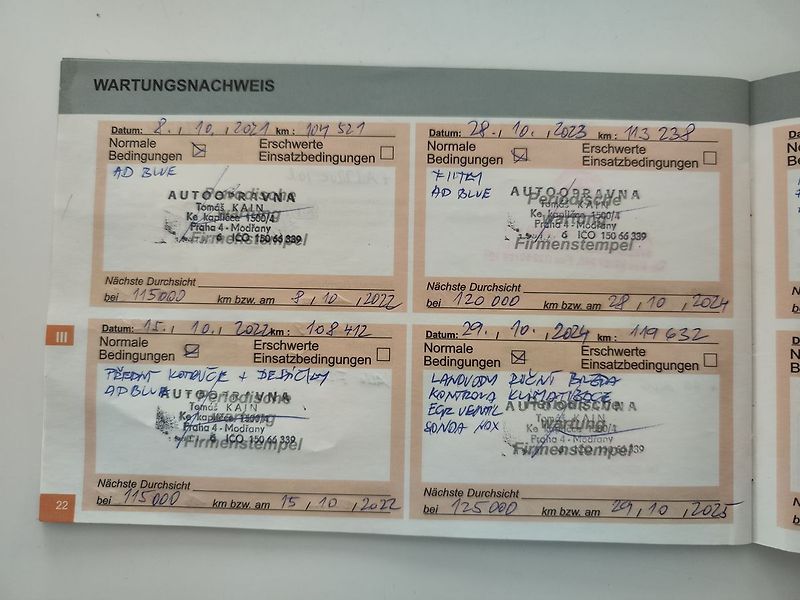 WARTUNGSNACHWEIS
Datum: 8., 10, , 2021 km : 104 521
Normale Bedingungen
Erschwerte Einsatzbedingungen
AD BLUE
Periodische Wartung
AUTOOPRAVNA
Tomáš KAIN
Ke kapličce 1500/4
Praha 4 - Modřany
6 ICO 150 66 339
Firmenstempel
Nächste Durchsicht
bei 115000 km bzw. am 8 , 10 , 2022
Datum: 28., 10. , 2023 km : 113 238
Normale Bedingungen
Erschwerte Einsatzbedingungen
FILTRY
AD BLUE
AUTOOPRAVNA
Periodische
Tomáš KAIN
Ke kapličce 1500/4
Wartung
Praha 4 - Modřany
6 ICO 150 66 339
Firmenstempel
Nächste Durchsicht
bei 120 000 km bzw. am 28 , 10 , 2024
III
Datum: 15., 10. , 2022 km : 108 412
Normale Bedingungen
Erschwerte Einsatzbedingungen
PŘEDNÍ KOTOUČE + DESTIČKY
AD BLUE
Periodische
AUTOOPRAVNA
Tomáš KAIN
Ke kapličce 1500/4
Wartung
Praha 4 - Modřany
6 ICO 150 66 339
Firmenstempel
Nächste Durchsicht
bei 115000 km bzw. am 15 , 10 , 2022
Datum: 29., 10. , 2024 km : 119 632
Normale Bedingungen
Erschwerte Einsatzbedingungen
RUČNÍ BRZDA
KONTROLA KLIMATIZACE
EGR VENTIL
SONDA NOX
AUTOOPRAVNA
Periodische
Tomáš KAIN
Ke kapličce 1500/4
Wartung
Praha 4 - Modřany
6 ICO 150 66 339
Firmenstempel
Nächste Durchsicht
bei 125 000 km bzw. am 29 , 10 , 2025
22